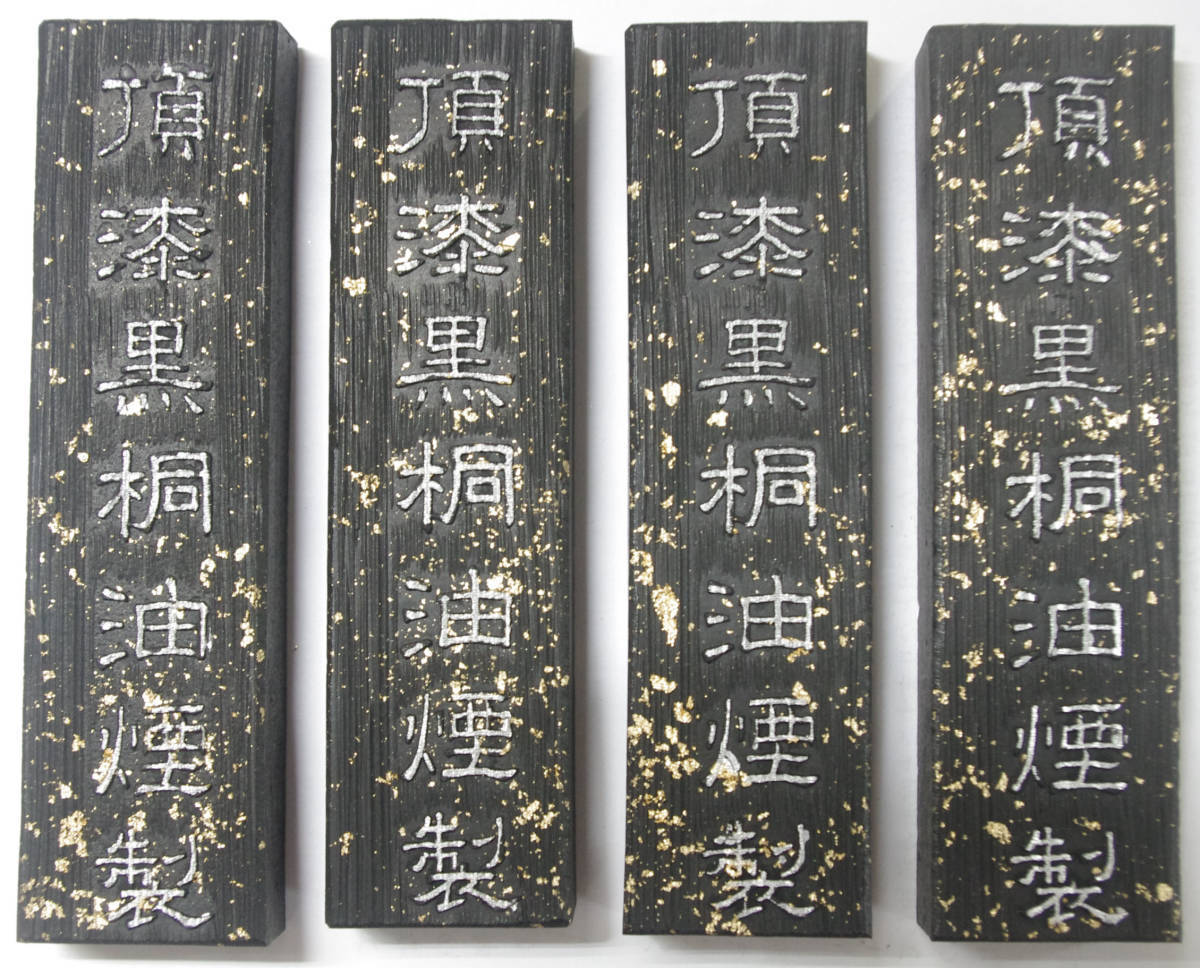 頂漆黒桐油煙製
頂漆黒桐油煙製
頂漆黒桐油煙製
頂漆黒桐油煙製